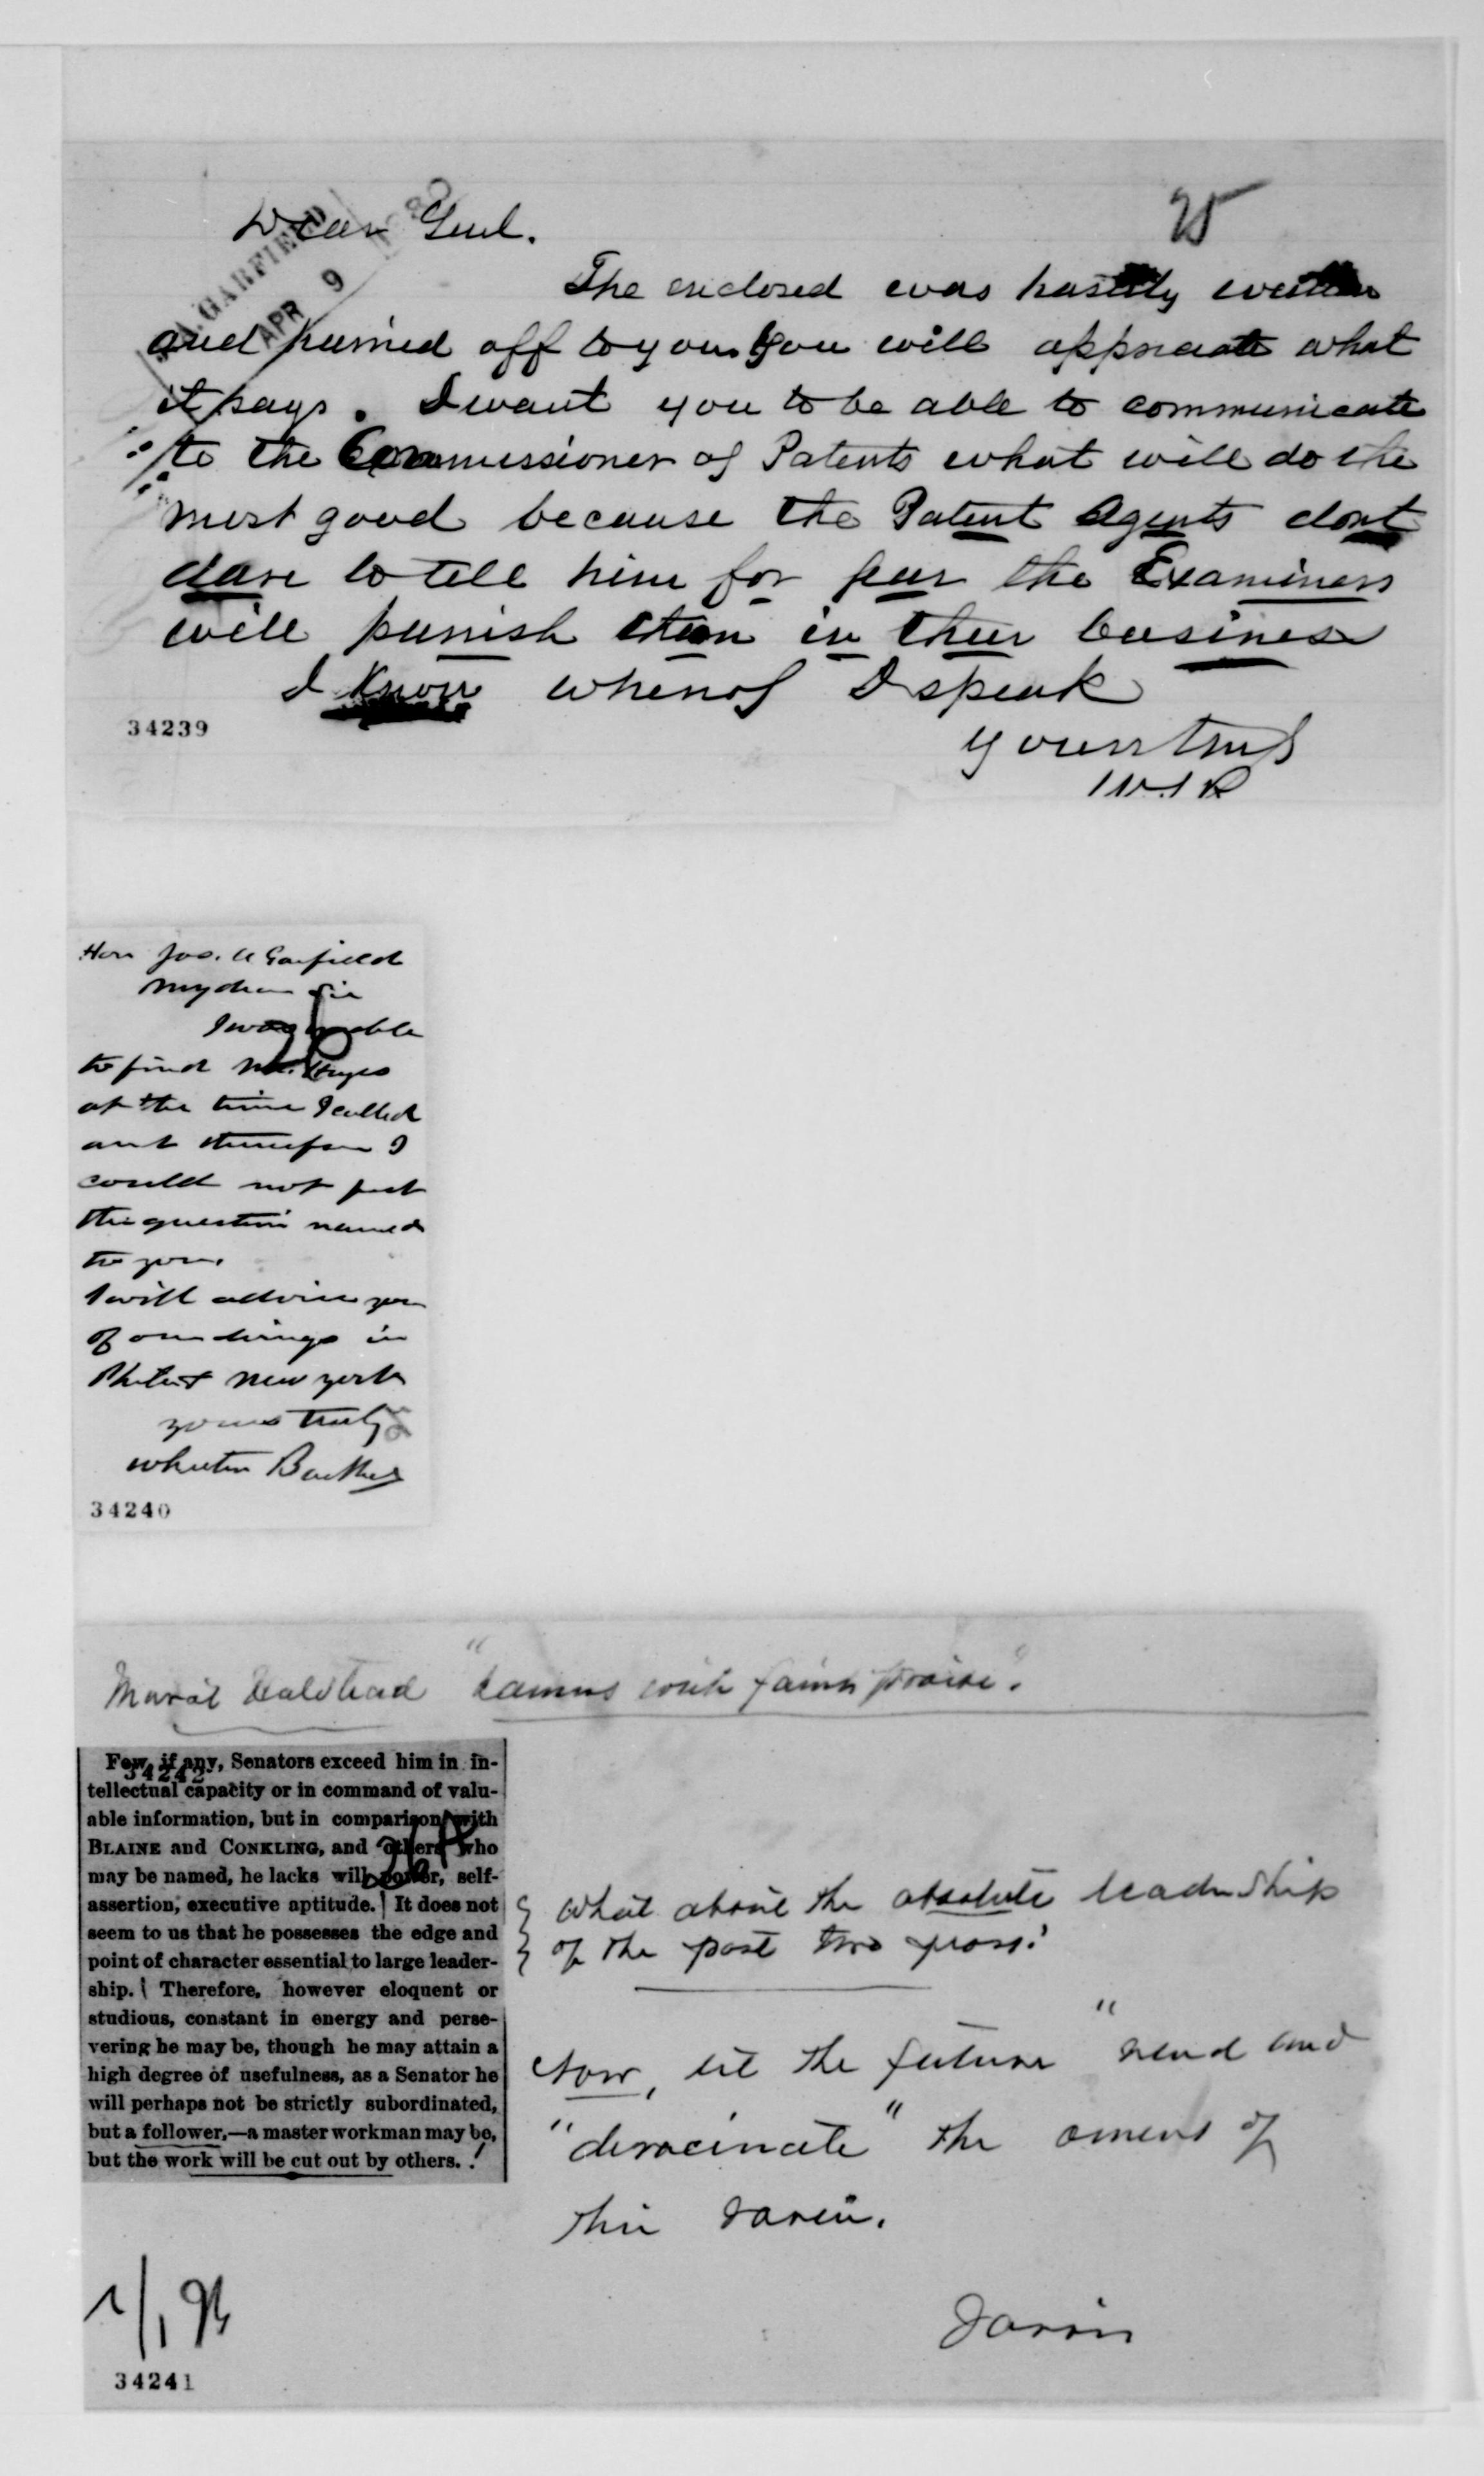 Dear Genl.
J.A. GARFIELD
APR 9 1880
The enclosed was hastily written
and hurried off to you. You will appreciate what
it says. I want you to be able to communicate
to the Commissioner of Patents what will do the
most good because the Patent Agents dont
dare to tell him for fear the Examiners
will punish them in their business
I know whereof I speak
Yours truly
34239
Hon Jas. A Garfield
My dear Sir
I was unable
to find Mr. Hayes
at the time I called
and therefore I
could not put
the question named
to you.
I will advise you
of our doings in
Phila & New York
Yours truly
Wharton Barker
34240
Murat Halstead "damns with faint praise".
34242
Few, if any, Senators exceed him in in-
tellectual capacity or in command of valu-
able information, but in comparison with
BLAINE and CONKLING, and others who
may be named, he lacks will power, self-
assertion, executive aptitude. It does not
seem to us that he possesses the edge and
point of character essential to large leader-
ship. Therefore, however eloquent or
studious, constant in energy and perse-
vering he may be, though he may attain a
high degree of usefulness, as a Senator he
will perhaps not be strictly subordinated,
but a follower,—a master workman may be,
but the work will be cut out by others.!
What about the absolute leadership
of the past two years!
Now, let the future "rend and
"deracinate" the omens of
this
34241